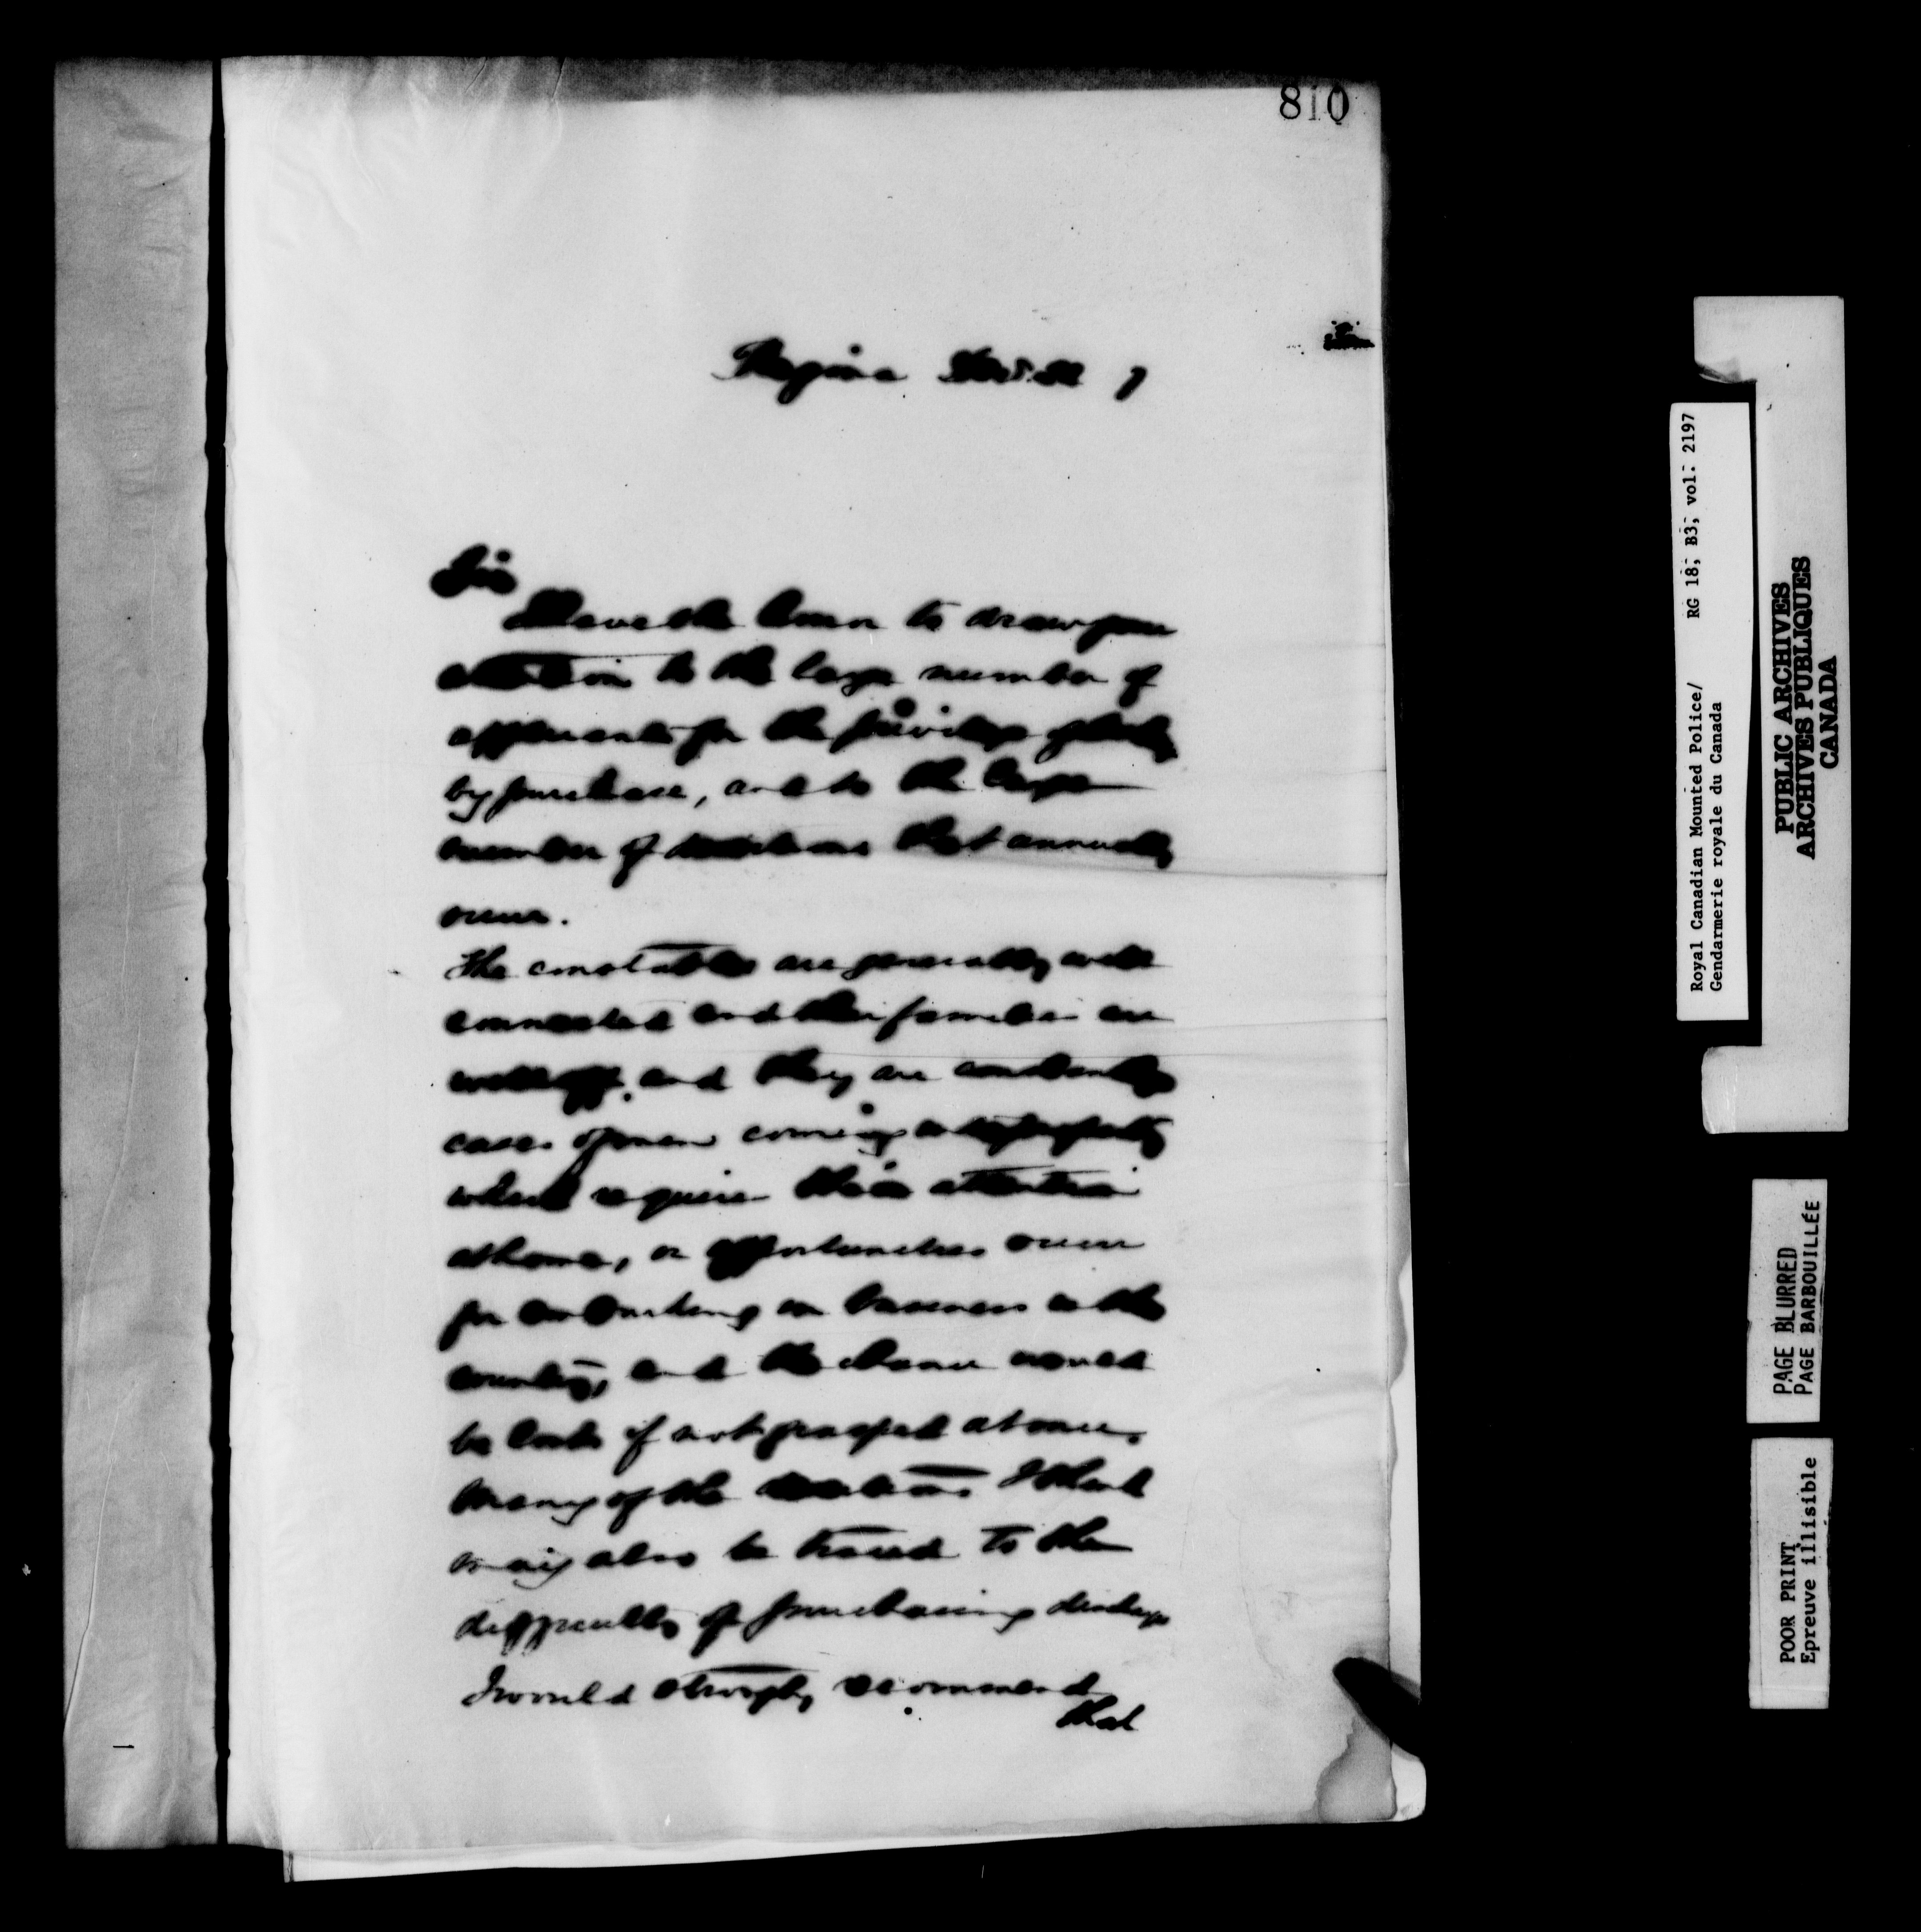 810
Regina
Sir
I have the honor to draw your
attention to the large number of
applicants for the privilege of disch
by purchase, and to the large
number of desertions that annually
occur.
The constables are generally well
connected and their families are
well off, and they are constantly
cases of men coming into property
which require their attention
at home, or opportunities occur
for embarking in business in the
country, and the chance would
be lost if not grasped at once.
Many of the desertions I think
may also be traced to the
difficulty of purchasing discharge
I would strongly recommend
that
Royal Canadian Mounted Police/ RG 18, B3, vol. 2197
Gendarmerie royale du Canada
PUBLIC ARCHIVES
ARCHIVES PUBLIQUES
CANADA
PAGE BLURRED
PAGE BARBOUILLÉE
POOR PRINT
Epreuve illisible